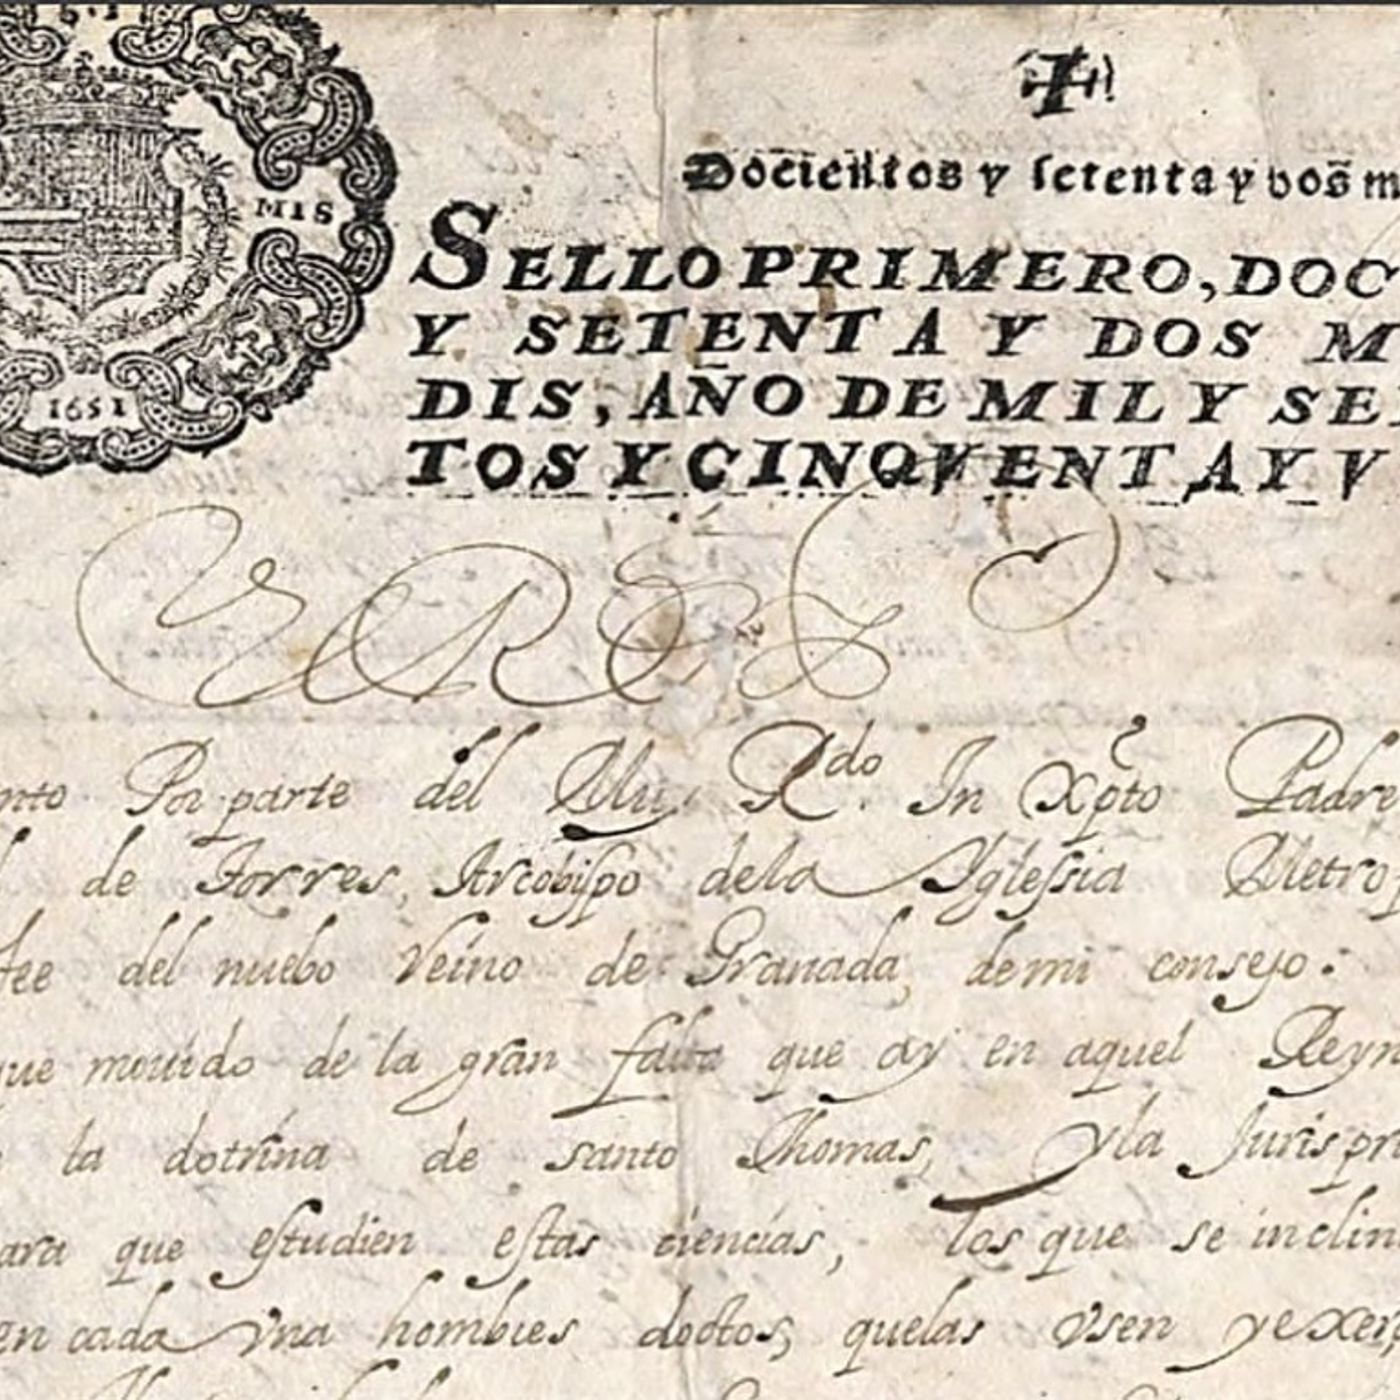 MIS
1651
Docientos y setenta y dos m
SELLO PRIMERO, DOC
Y SETENTA Y DOS M
DIS, AÑO DE MIL Y SE
TOS Y CINQVENTA Y V
nto Por parte del Muy R.do In Xpto Padre
de Torres, Arcobispo dela Yglessia Metrop
fee del nuebo Reino de Granada, de mi consejo.
que mouido de la gran falta que ay en aquel Reyn
la dotrina de santo Thomas, y la Jurispr
ara que estudien estas ciencias, los que se inclin
en cada vna hombres doctos, quelas vsen y exer